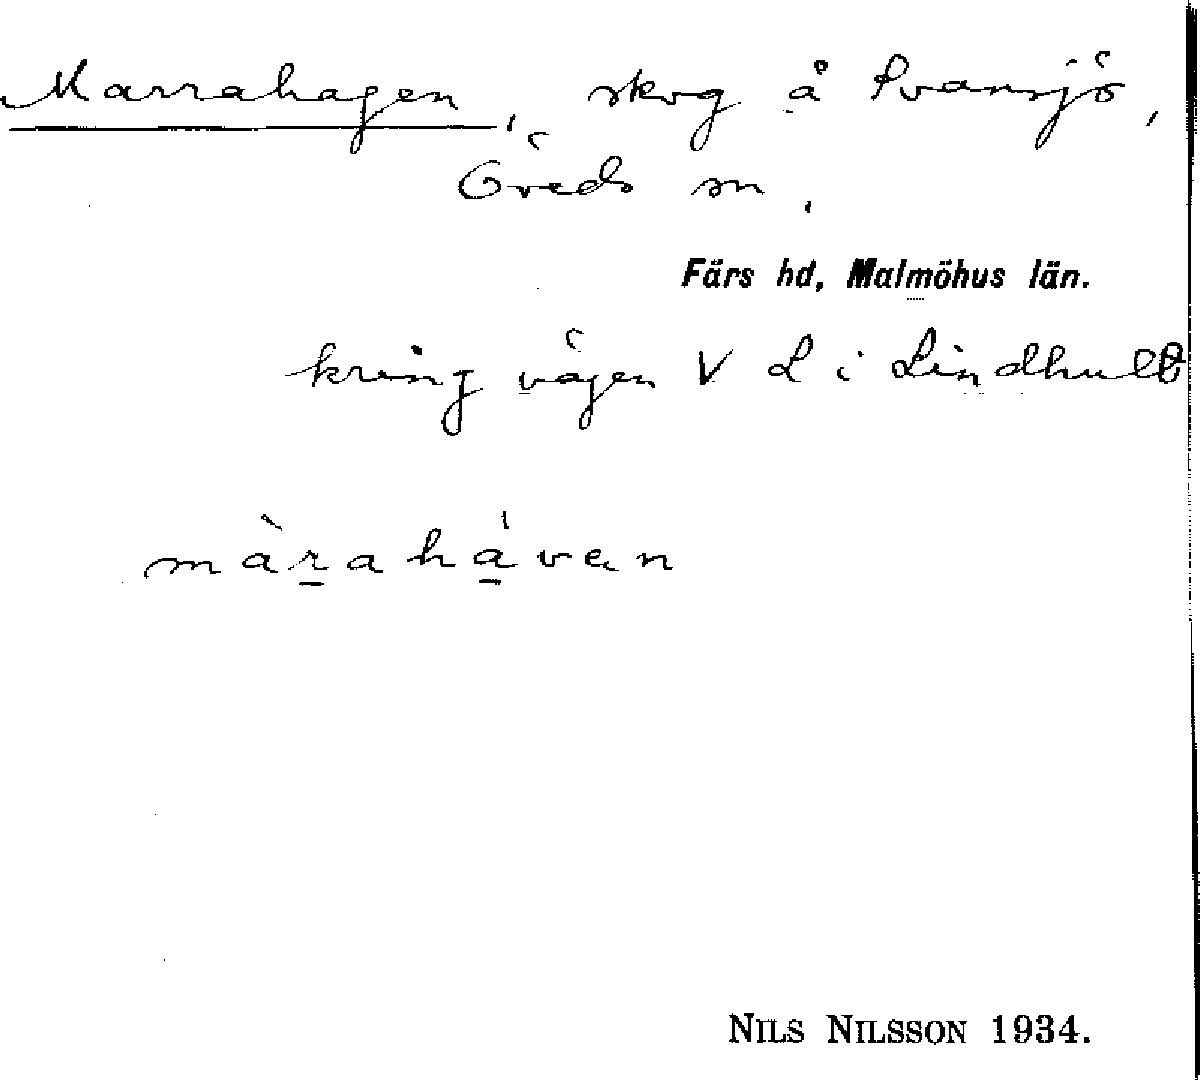 Marrahagen, skog å Svansjö,
Öveds sn.
Färs hd, Malmöhus län.
kring vägen V L i Lindhult
màrahávan
NILS NILSSON 1934.